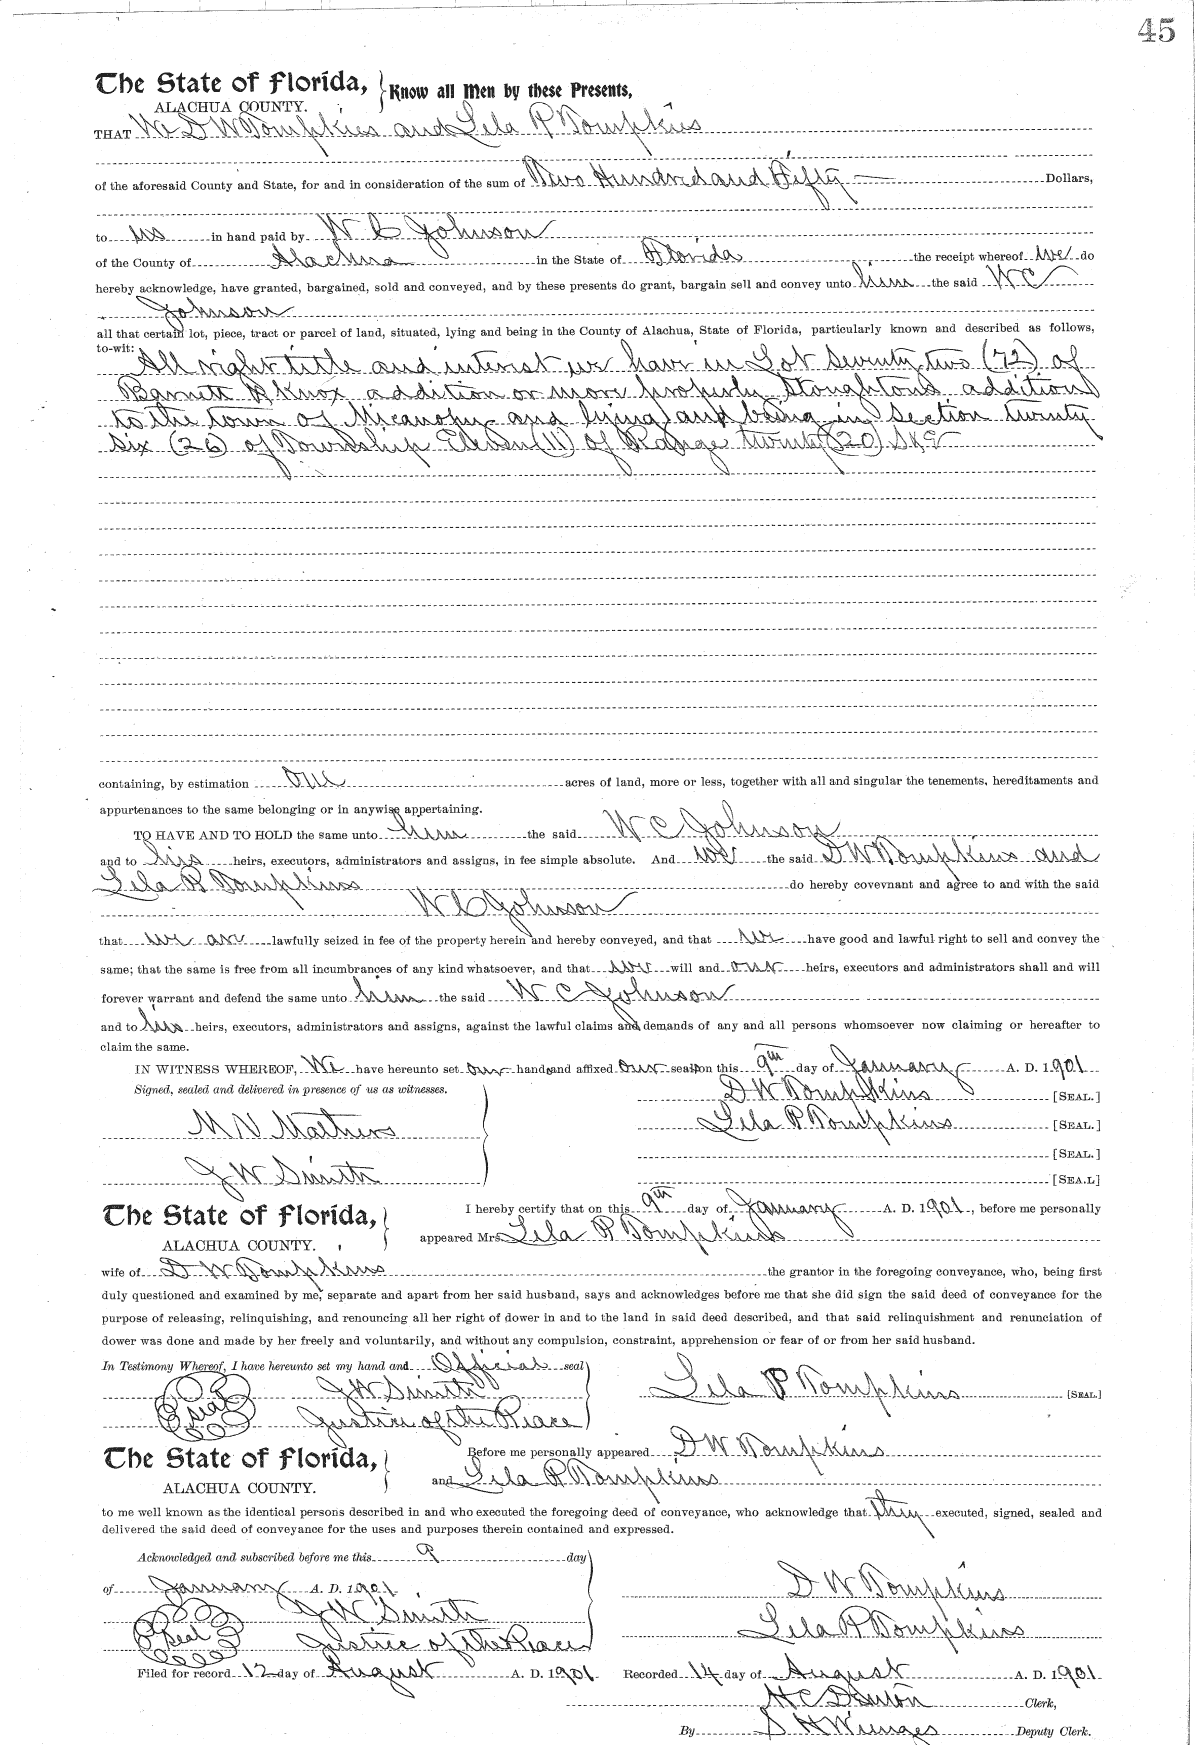 45
The State of Florida, Know all Men by these Presents,
ALACHUA COUNTY.
THAT We D W Tompkins and Lela P Tompkins
of the aforesaid County and State, for and in consideration of the sum of Two Hundred and Fifty Dollars,
to us in hand paid by W C Johnson
of the County of Alachua in the State of Florida the receipt whereof we do
hereby acknowledge, have granted, bargained, sold and conveyed, and by these presents do grant, bargain sell and convey unto him the said W C
Johnson
all that certain lot, piece, tract or parcel of land, situated, lying and being in the County of Alachua, State of Florida, particularly known and described as follows,
to-wit: All right title and interest we have in Lot Seventy two (72) of
Barnett R Knox addition or more properly Stoughtons addition
to the town of Micanopy and lying and being in Section twenty
six (26) of Township Eleven (11) of Range twenty (20) S & E
containing, by estimation one acres of land, more or less, together with all and singular the tenements, hereditaments and
appurtenances to the same belonging or in anywise appertaining.
TO HAVE AND TO HOLD the same unto him the said W C Johnson
and to his heirs, executors, administrators and assigns, in fee simple absolute. And we the said D W Tompkins and
Lela P Tompkins do hereby covevnant and agree to and with the said
W C Johnson
that we are lawfully seized in fee of the property herein and hereby conveyed, and that we have good and lawful right to sell and convey the
same; that the same is free from all incumbrances of any kind whatsoever, and that we will and our heirs, executors and administrators shall and will
forever warrant and defend the same unto him the said W C Johnson
and to his heirs, executors, administrators and assigns, against the lawful claims and demands of any and all persons whomsoever now claiming or hereafter to
claim the same.
IN WITNESS WHEREOF, We have hereunto set our hands and affixed our seals on this 9th day of January A. D. 1901
Signed, sealed and delivered in presence of us as witnesses.
D W Tompkins [SEAL.]
M N Mathews
Lela P Tompkins [SEAL.]
[SEAL.]
J W Smith
[SEA.L]
The State of Florida, I hereby certify that on this 9th day of January A. D. 1901, before me personally
ALACHUA COUNTY. appeared Mrs Lela P Tompkins
wife of D W Tompkins the grantor in the foregoing conveyance, who, being first
duly questioned and examined by me, separate and apart from her said husband, says and acknowledges before me that she did sign the said deed of conveyance for the
purpose of releasing, relinquishing, and renouncing all her right of dower in and to the land in said deed described, and that said relinquishment and renunciation of
dower was done and made by her freely and voluntarily, and without any compulsion, constraint, apprehension or fear of or from her said husband.
In Testimony Whereof, I have hereunto set my hand and Official seal
J W Smith Lela P Tompkins [SEAL]
Seal Justice of the Peace
The State of Florida, Before me personally appeared D W Tompkins
ALACHUA COUNTY. and Lela P Tompkins
to me well known as the identical persons described in and who executed the foregoing deed of conveyance, who acknowledge that they executed, signed, sealed and
delivered the said deed of conveyance for the uses and purposes therein contained and expressed.
Acknowledged and subscribed before me this 9 day
of January A. D. 1901 D W Tompkins
J W Smith
Seal Justice of the Peace Lela P Tompkins
Filed for record 12 day of August A. D. 1901 Recorded 14 day of August A. D. 1901
H C Denton Clerk,
By S H Wienges Deputy Clerk.